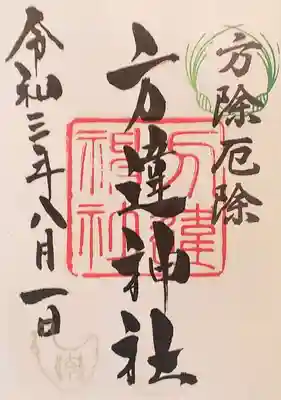 方除厄除
方違神社
方違神社
令和三年八月一日